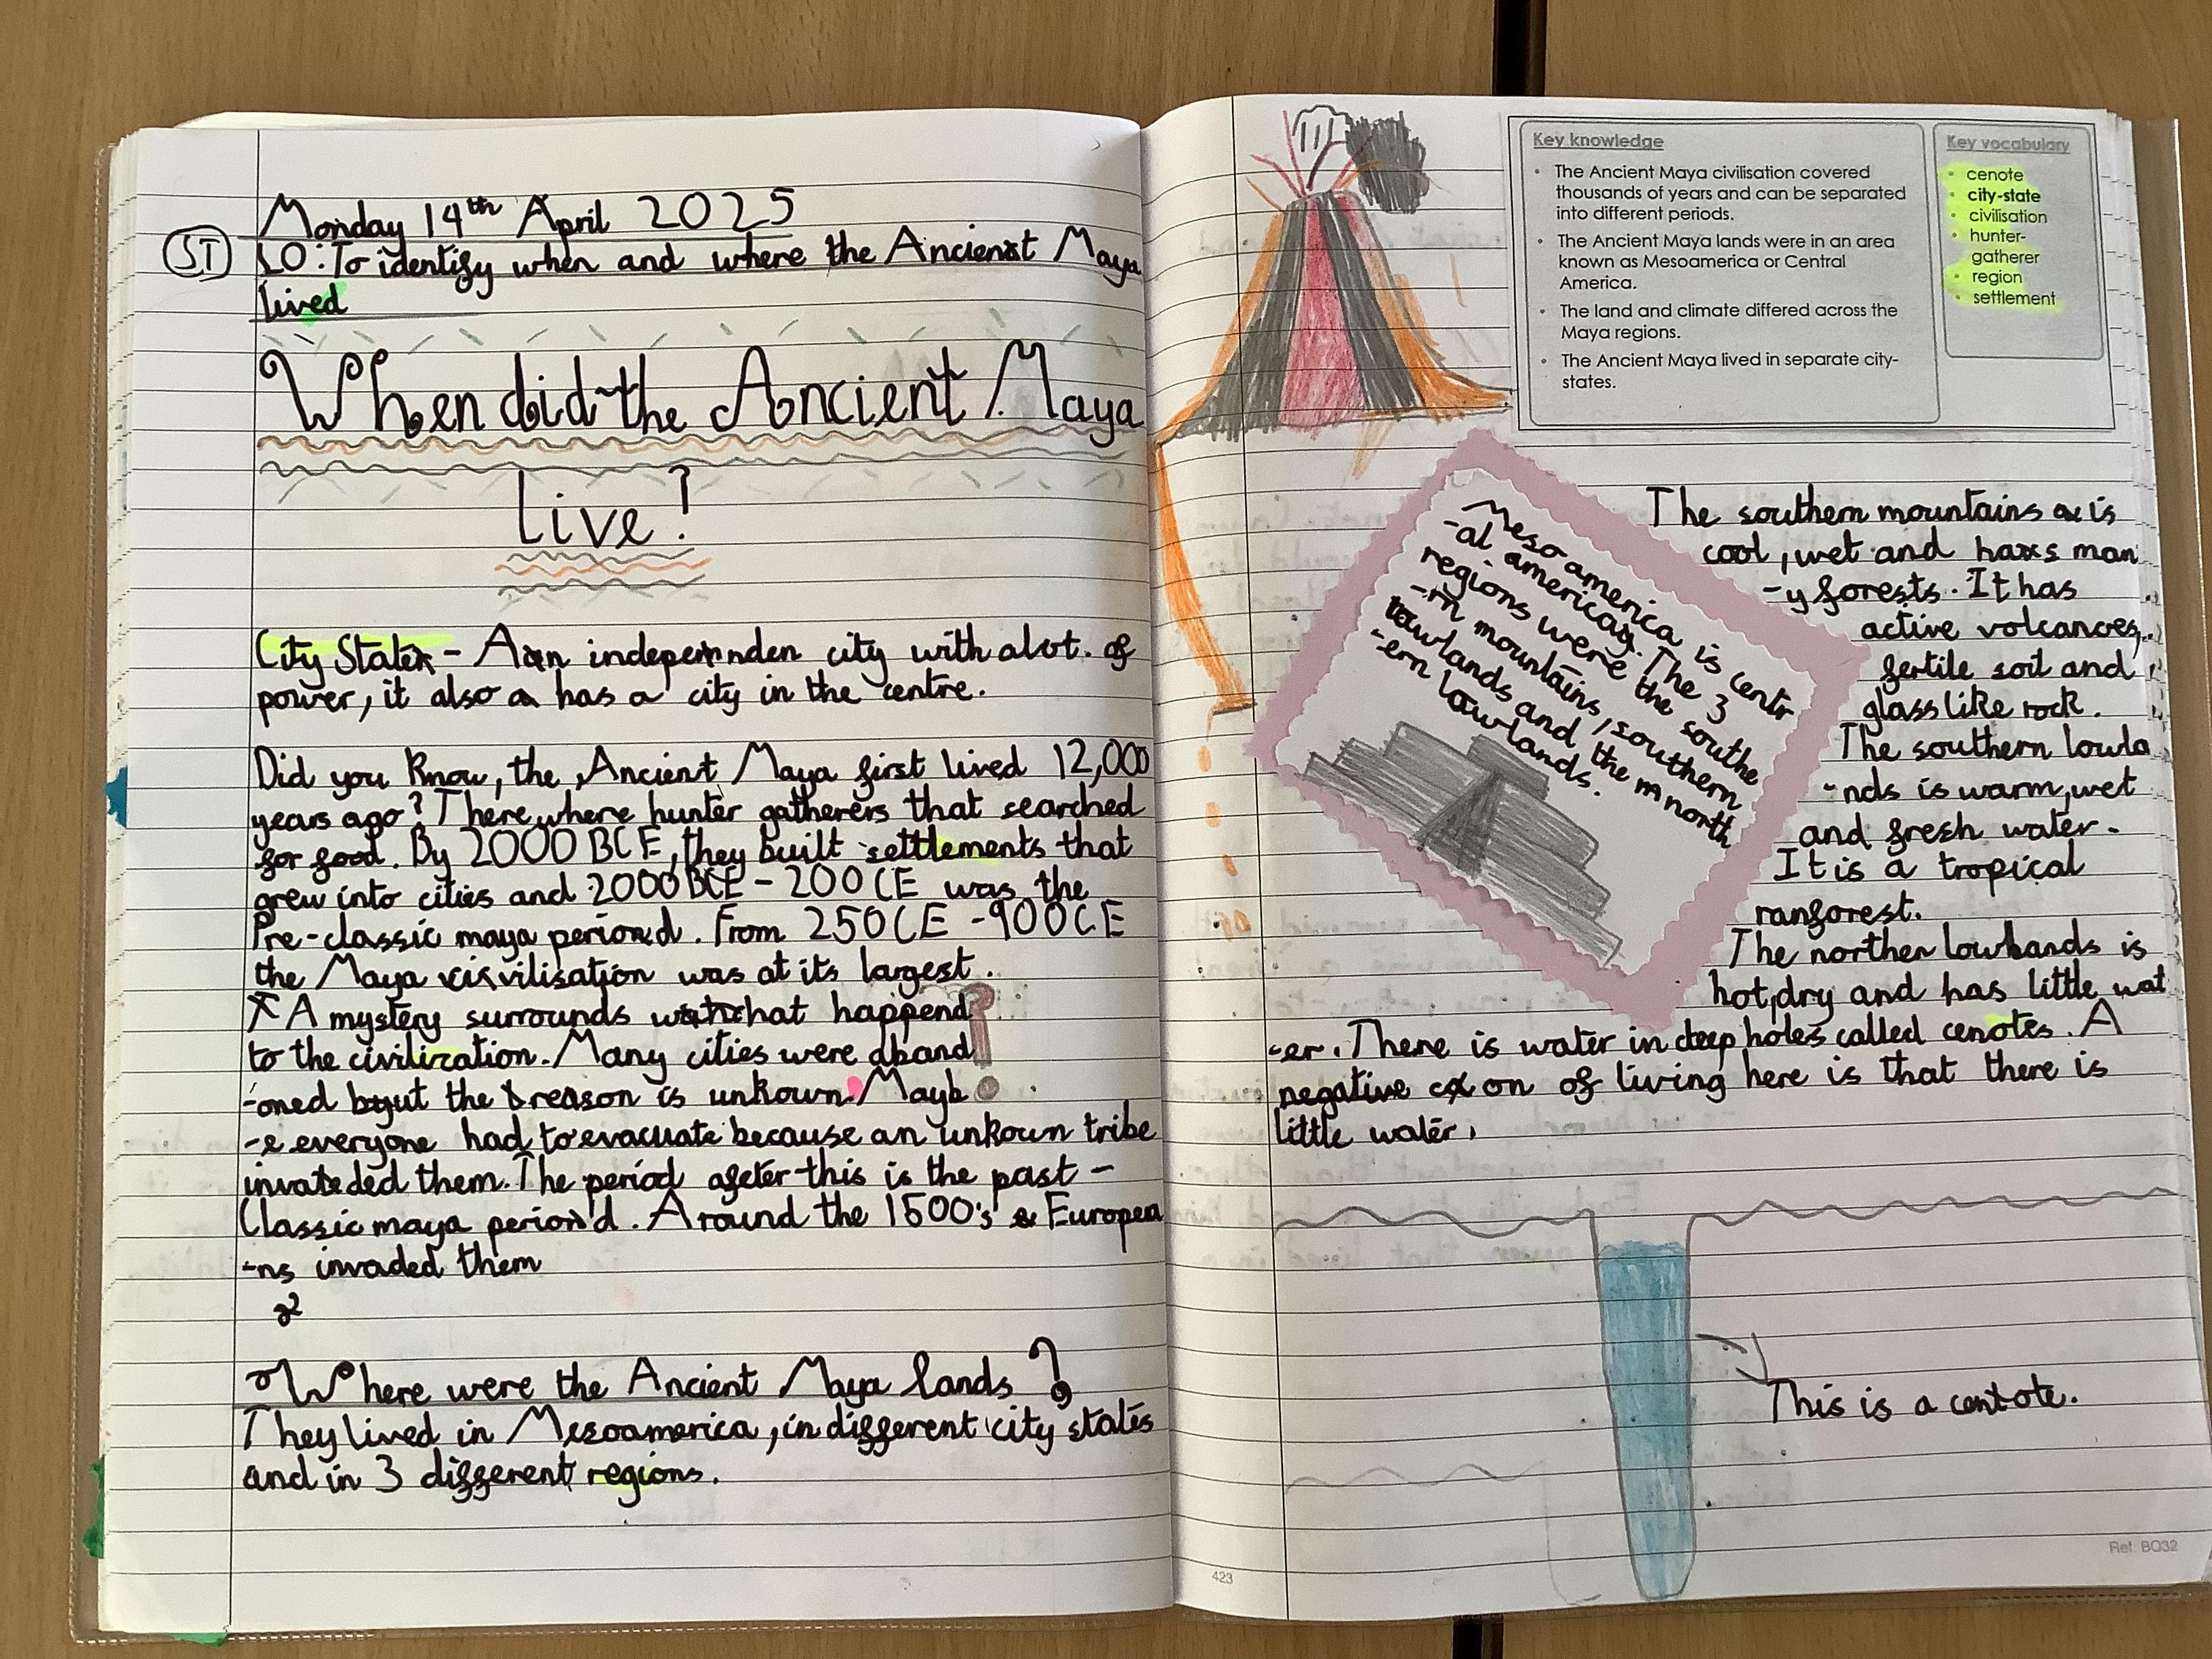 Monday 14th April 2025
ST
LO: To identify when and where the Ancient Maya
lived
When did the Ancient Maya
live?
City State - An indepennden city with alot. of
power, it also has a city in the centre.
Did you know, the Ancient Maya first lived 12,000
years ago? There where hunter gatherers that searched
for food. By 2000 BCE, they built settlements that
grew into cities and 2000BCE - 200CE was the
Pre-classic maya period. From 250CE - 900CE
the Maya civilisation was at its largest.
A mystery surrounds what happend
to the civilization. Many cities were aband
-oned but the reason is unkown. Mayb
-e everyone had to evacuate because an unkown tribe
invateded them. The period after this is the past-
Classic maya period. Around the 1500's Europea
-ns invaded them
Where were the Ancient Maya lands?
They lived in Mesoamerica, in different city states
and in 3 different regions.
Key knowledge
• The Ancient Maya civilisation covered
thousands of years and can be separated
into different periods.
• The Ancient Maya lands were in an area
known as Mesoamerica or Central
America.
• The land and climate differed across the
Maya regions.
• The Ancient Maya lived in separate city-
states.
Key vocabulary
• cenote
• city-state
• civilisation
• hunter-
gatherer
• region
• settlement
Meso america is centr
-al america. The 3
regions were the southe
-rn mountains, southern
lowlands and the north
-ern lowlands.
The southern mountains is
cool, wet and has man
-y forests. It has
active volcanoes,
fertile soil and
glass like rock.
The southern lowla
-nds is warm, wet
and fresh water.
It is a tropical
ranforest.
The norther lowlands is
hot, dry and has little wat
-er. There is water in deep holes called cenotes. A
negative con of living here is that there is
little water.
This is a centote.
423
Ref: BO32